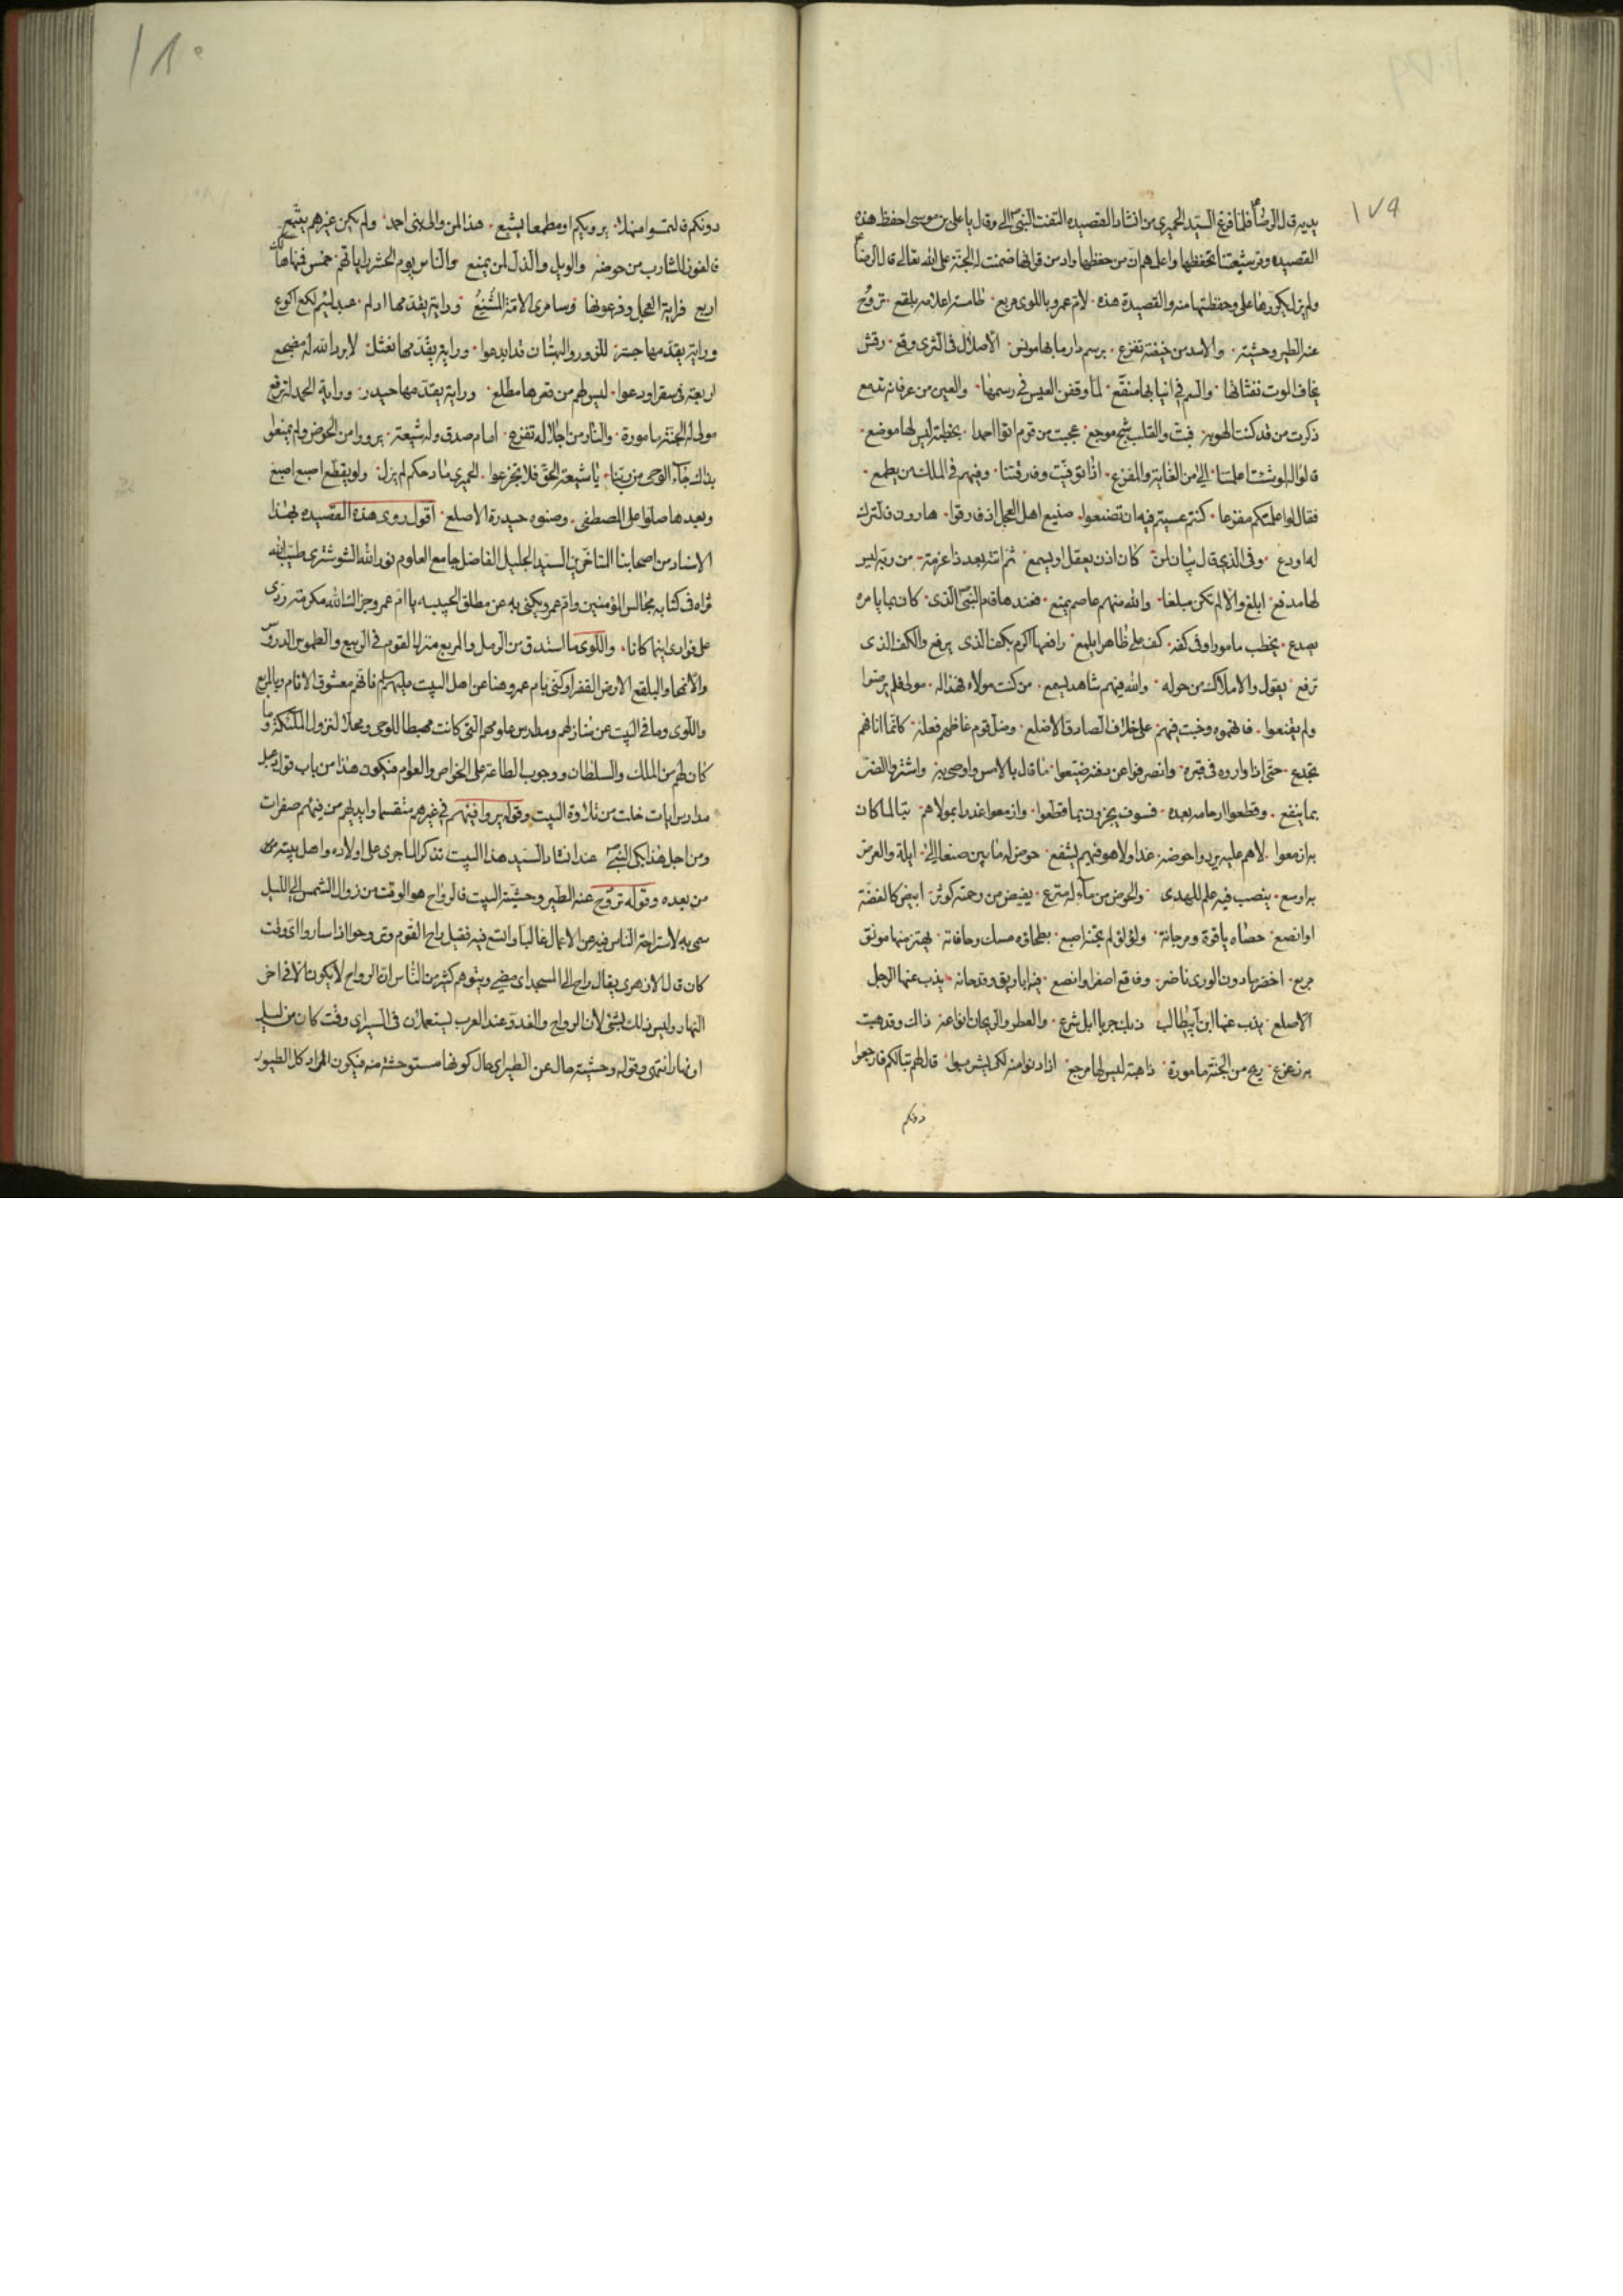 ١٧٩
يديه قال الرضا ع فلما فرغ السيد الحميري من انشاد القصيده التفت النبي ص الي وقال يا علي بن موسى احفظ هذه
القصيده ومر شيعتنا بحفظها واعلمهم ان من حفظها وادمن قرائتها ضمنت له الجنة على الله تعالى قال الرضا ع
ولم يزل يكررها علي وحفظتها منه والقصيدة هذه لام عمرو باللوى مربع طامسة اعلامه بلقع تروح
عنه الطير وحشية والاسد من خيفته تفزع برسم دار ما بها مونس الا صلال في الثرى وقع رقش
يخاف الموت نفثاتها والسم في انيابها منقع لما وقفن العيس في رسمها والعين من عرفانه تدمع
ذكرت من قد كنت الهو به فبت والقلب شج موجع عجبت من قوم اتوا احمدا بخطبة ليس لها موضع
قالوا له لو شئت اعلمتنا الى من الغاية والمفزع اذا توفيت وفارقتنا وفيهم في الملك من يطمع
فقال لو اعلمتكم مفزعا كنتم عسيتم فيه ان تضنعوا صنيع اهل العجل اذ فارقوا هارون فالترك
له اودع وفي الذي قال بيان لمن كان اذن يعقل او يسمع ثم اتته بعد ذا عزمة من ربه ليس
لها مدفع ابلغ والا لم تكن مبلغا والله منهم عاصم يمنع فعندها قام النبي الذي كان بما يامره
يصدع يخطب مامورا وفي كفه كف علي ظاهرا يلمع رافعها اكرم بكف الذي يرفع والكف الذي
ترفع يقول والاملاك من حوله والله فيهم شاهد يسمع من كنت مولاه فهذا له مولى فلم يرضوا
ولم يقنعوا فاتهموه وخبت فيهم على خلاف الصادق الاضلع وضل قوم غاظهم فعله كانما انافهم
تجدع حتى اذا واروه في قبره وانصرفوا عن دفنه ضيعوا ما قال بالامس واوصى به واشتروا الضر
بما ينفع وقطعوا ارحامه بعده فسوف يجزون بما قطعوا وازمعوا غدرا بمولاهم تبا لما كان
به ازمعوا لا هم عليه يردوا حوضه غدا ولا هو فيهم يشفع حوض له ما بين صنعا الى ايلة والعرض
به اوسع ينصب فيه علم للهدى والحوض من ماء له مترع يفيض من رحمته كوثر ابيض كالفضة
او انصع حصاه ياقوة ومرجانة ولؤلؤ لم تجنه اصبع بطحاؤه مسك وحافاته يهتز منها مونق
مربع اخضر ما دون الورى ناضر وفاقع اصفر او انصع فيه اباريق وقدحانه يذب عنها الرجل
الاصلع يذب عنها ابن ابيطالب ذبا كجربا ابل شرع والعطر والريحان انواعه ذاك وقد هبت
به زعزع ريح من الجنة مامورة ذاهبة ليس لها مرجع اذا دنوا منه لكي يشربوا قال لهم تبا لكم فارجعوا
دونكم
١٨٠
دونكم فالتمسوا منهلا يرويكم او مطمعا يشبع هذا لمن والى بنى احمد ولم يكن غيرهم يتبع
فالفوز للشارب من حوضه والويل والذل لمن يمنع والناس يوم الحشر راياتهم خمس فمنها هالك
اربع فراية العجل وفرعونها وسامري الامة المشنع وراية يقدمها ادلم عبد لئيم لكع اكوع
وراية يقدمها حبتر للزور والبهتان قد ابدعوا وراية يقدمها نعثل لا برد الله له مضجع
اربعة في سقر اودعوا ليس لهم من قعرها مطلع وراية يقدمها حيدر وراية الحمد له ترفع
مولى له الجنة مامورة والنار من اجلاله تفزع امام صدق وله شيعة يرووا من الحوض ولم يمنعوا
بذاك جاء الوحي من ربنا يا شيعة الحق فلا تجزعوا الحميري مادحكم لم يزل ولو يقطع اصبع اصبع
وبعدها صلوا على المصطفى وصنوه حيدرة الاصلع اقول روى هذه القصيده بهذا
الاسناد من اصحابنا المتاخرين السيد الجليل الفاضل جامع العلوم نور الله الشوشتري طيب الله
ثراه في كتابه مجالس المؤمنين وام عمرو يكنى به عن مطلق الحبيبه يا ام عمرو جزاك الله مكرمة ردى
على فوادى اينما كانا واللوى ما استدق من الرمل والمربع منزل القوم في الربيع والطموس الدروس
والانمحاء والبلقع الارض القفر او كنى بام عمرو هنا عن اهل البيت عليهم السلم فانهم معشوق الانام وبالمربع
واللوى وما في البيت عن منازلهم ومدارس علومهم التي كانت مهبطا للوحي ومحلا لنزول الملئكة وما
كان لهم من الملك والسلطان ووجوب الطاعة على الخواص والعوام فيكون هذا من باب قول دعبل
مدارس ايات خلت من تلاوة البيت وقوله يروا فيئهم في غيرهم متقسما وايديهم من فيئهم صفرات
ومن اجل هذا بكى النبي ص عند انشاد السيد هذا البيت تذكرا لما جرى على اولاده واهل بيته
من بعده وقوله تروح عنه الطير وحشية البيت فالرواح هو الوقت من زوال الشمس الى الليل
سمى به لاستراحة الناس فيه من الاعمال غالبا واتسع فيه فقيل راح القوم وتروحوا اذا ساروا اي وقت
كان قال الازهري يقال راح الى المسجد اى مضى ويتوهم كثير من الناس ان الرواح لا يكون الا في اخر
النهار وليس ذلك بشئ لان الرواح والغدو عند العرب يستعملان في السير اي وقت كان من ليل
او نهار انتهى وقوله وحشية حال عن الطير اى حال كونها مستوحشة منه فيكون المراد كل الطيور